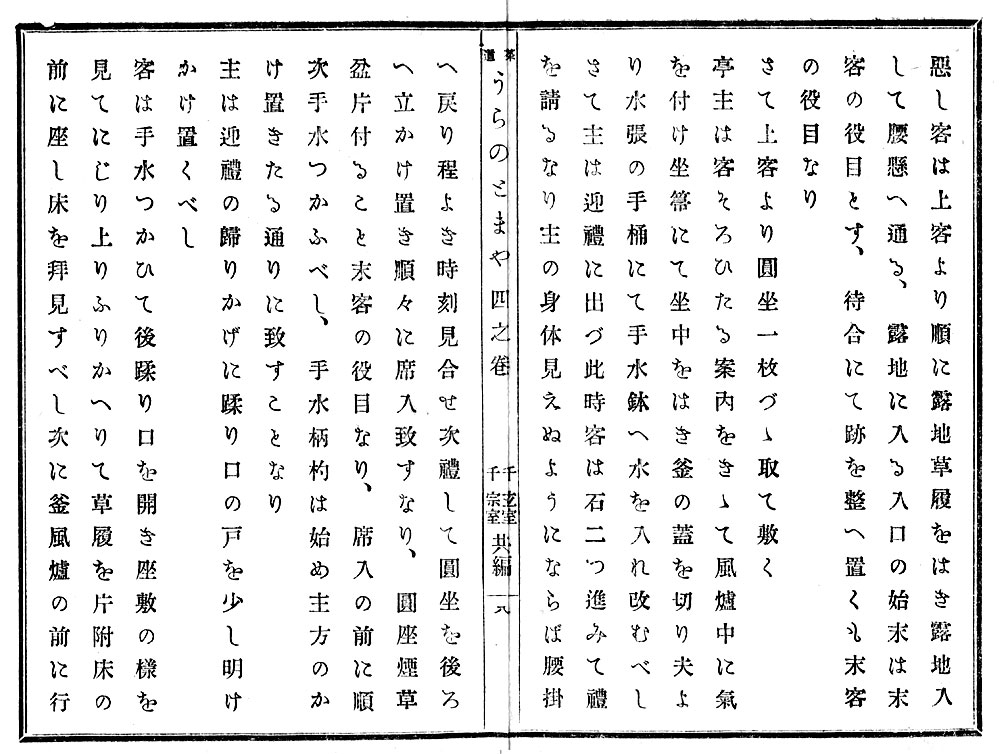 惡し客は上客より順に露地草履をはき露地入
して腰懸へ通る、露地に入る入口の始末は末
客の役目とす、待合にて跡を整へ置くも末客
の役目なり
さて上客より圓坐一枚づゝ取て敷く
亭主は客そろひたる案内をきゝて風爐中に氣
を付け坐箒にて坐中をはき釜の蓋を切り夫よ
り水張の手桶にて手水鉢へ水を入れ改むべし
さて主は迎禮に出づ此時客は石二つ進みて禮
を請るなり主の身体見えぬようにならば腰掛
茶道 うらのとまや 四之卷 千玄室 千宗室 共編 八
へ戻り程よき時刻見合せ次禮して圓坐を後ろ
へ立かけ置き順々に席入致すなり、圓座煙草
盆片付ること末客の役目なり、席入の前に順
次手水つかふべし、手水柄杓は始め主方のか
け置きたる通りに致すことなり
主は迎禮の歸りかげに蹂り口の戸を少し明け
かけ置くべし
客は手水つかひて後蹂り口を開き座敷の樣を
見てにじり上りふりかへりて草履を片附床の
前に座し床を拜見すべし次に釜風爐の前に行